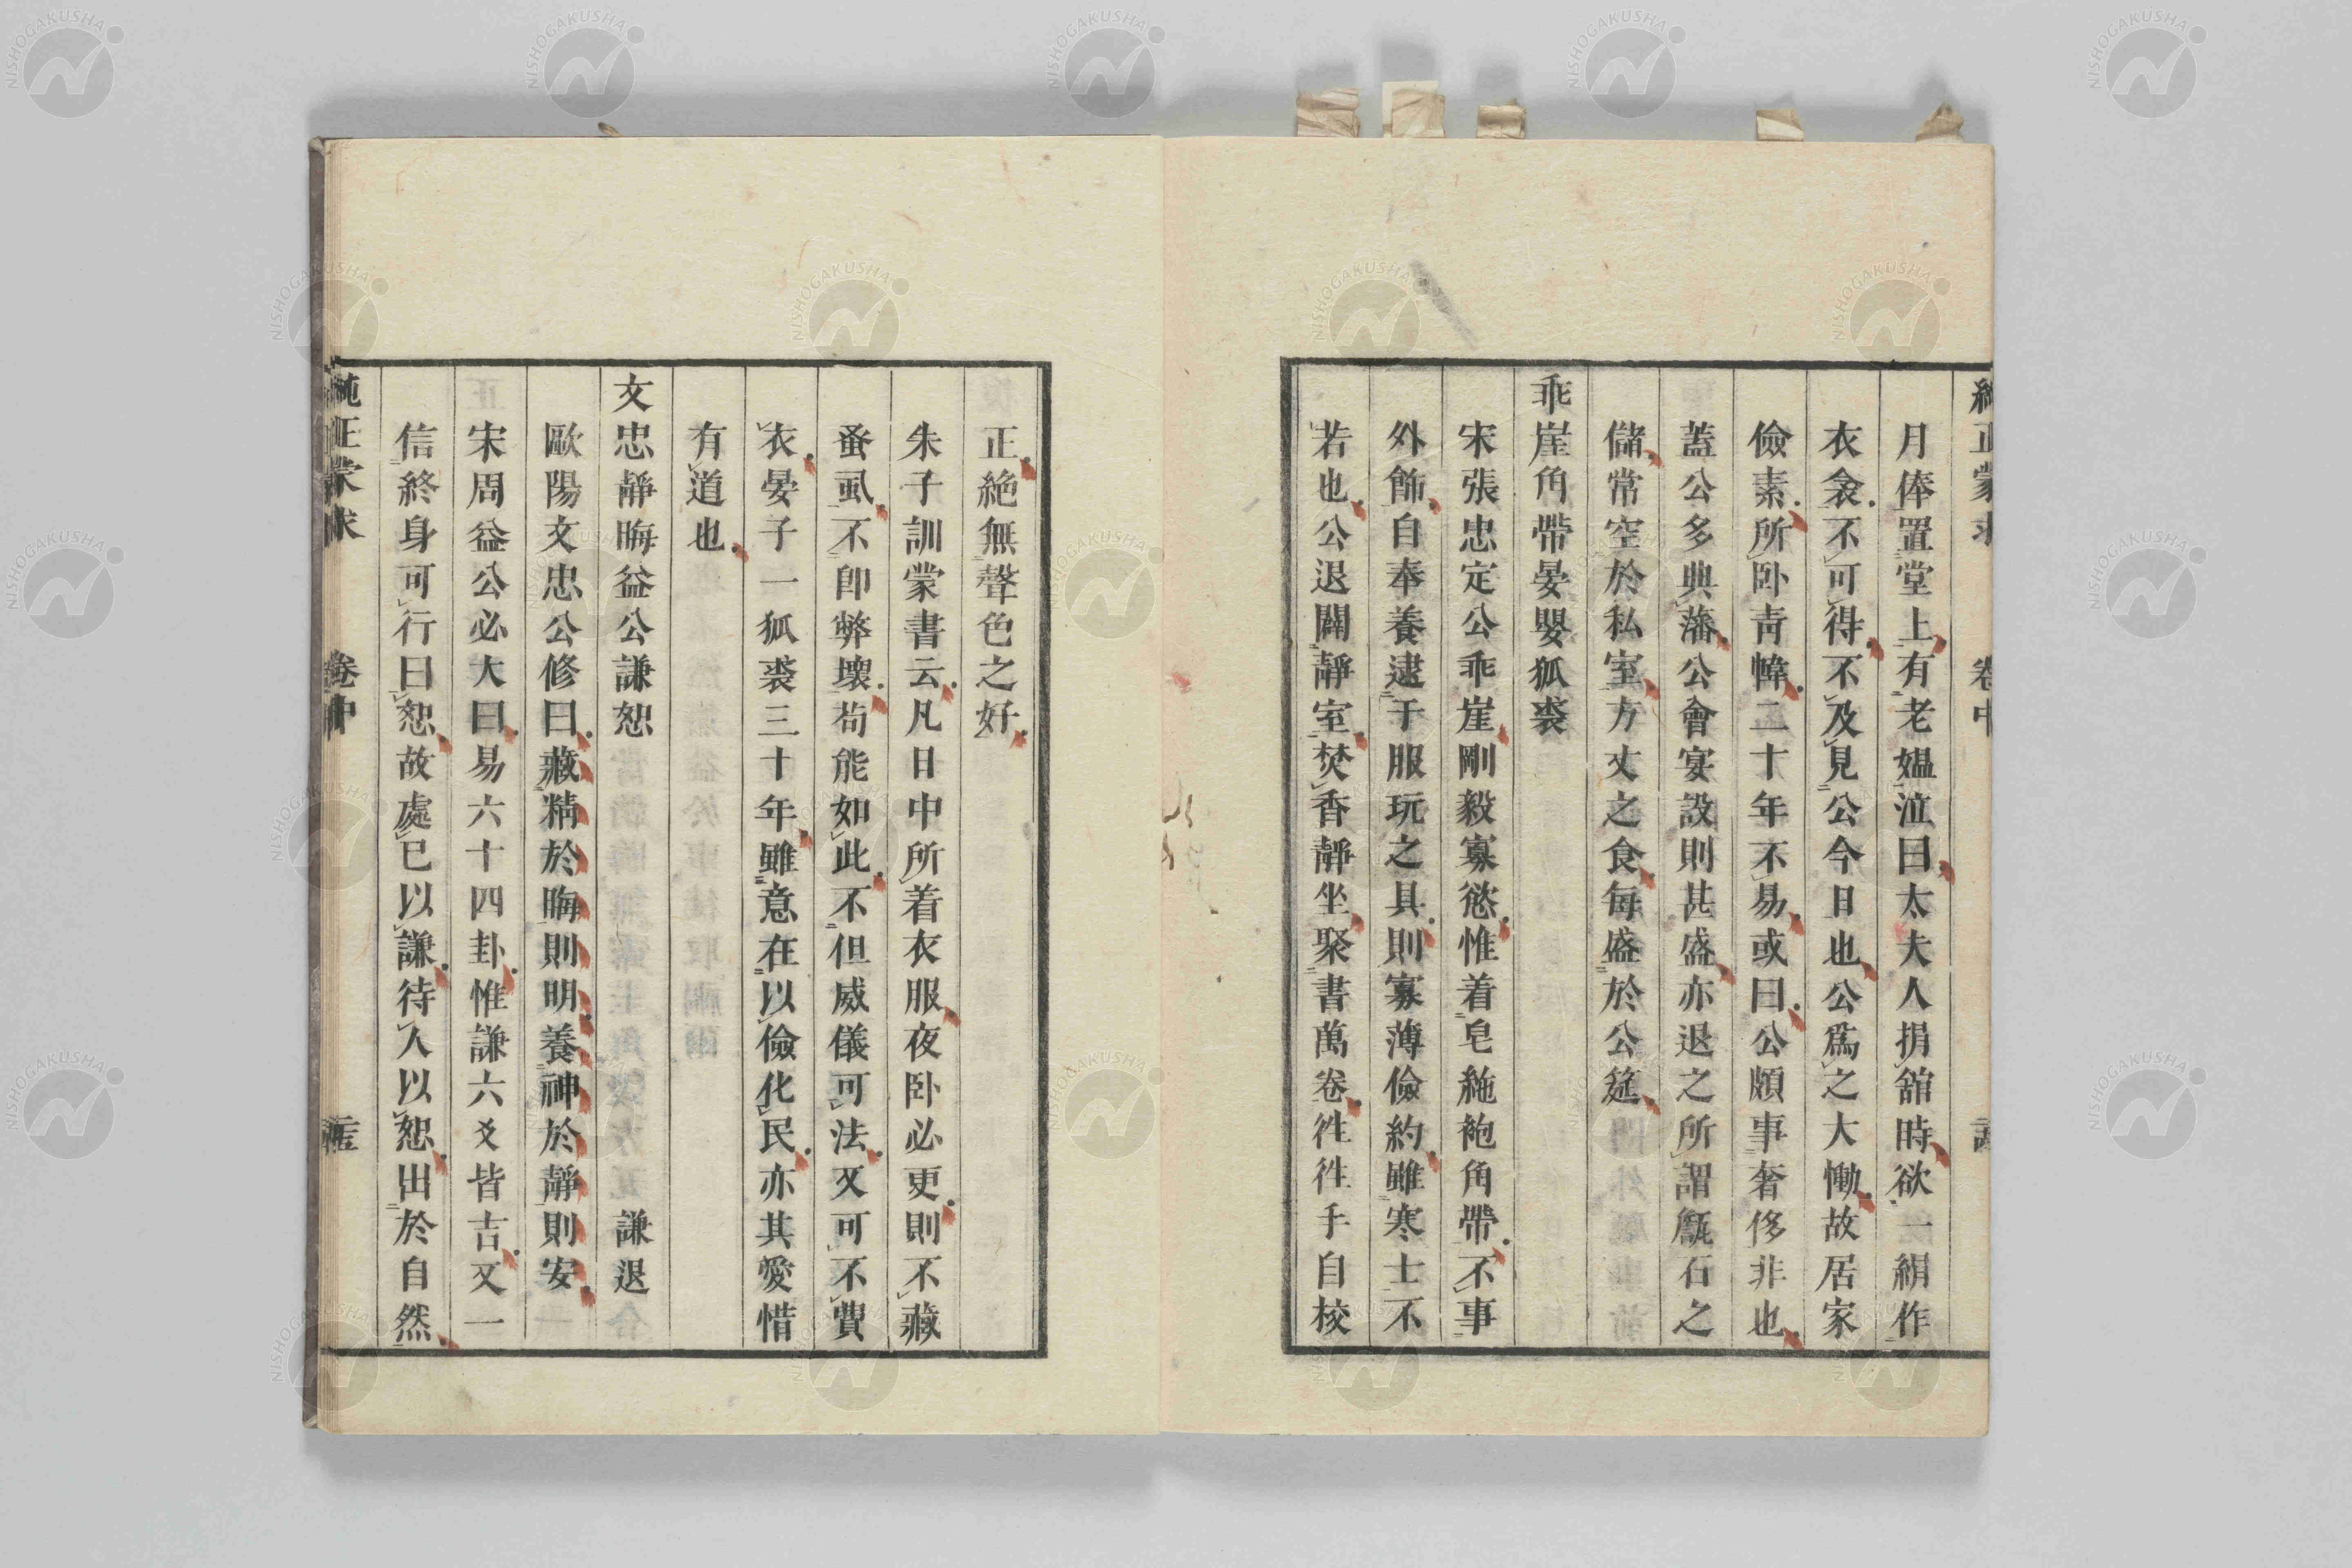 月俸置堂上有老媼泣曰太夫人捐舘時欲一絹作
衣衾不可得不及見公今日也公爲之大慟故居家
儉素所卧靑幃二十年不易或曰公頗事奢侈非也
蓋公多典藩公會宴設則甚盛亦退之所謂甔石之
儲常空於私室方丈之食每盛於公筵
乖崖角帶晏嬰狐裘
宋張忠定公乖崖剛毅寡慾惟着皂絁袍角帶不事
外飾自奉養逮于服玩之具則寡薄儉約雖寒士不
若也公退闢靜室焚香靜坐聚書萬卷徃徃手自校
正絶無聲色之好
朱子訓蒙書云凡日中所着衣服夜卧必更則不藏
蚤虱不卽弊壞苟能如此不但威儀可法又可不費
衣晏子一狐裘三十年雖意在以儉化民亦其愛惜
有道也
文忠靜晦益公謙恕 謙退
歐陽文忠公修曰藏精於晦則明養神於靜則安
宋周益公必大曰易六十四卦惟謙六爻皆吉又一
信終身可行曰恕故處已以謙待人以恕出於自然
純正蒙求 卷中
NISHOGAKUSHA